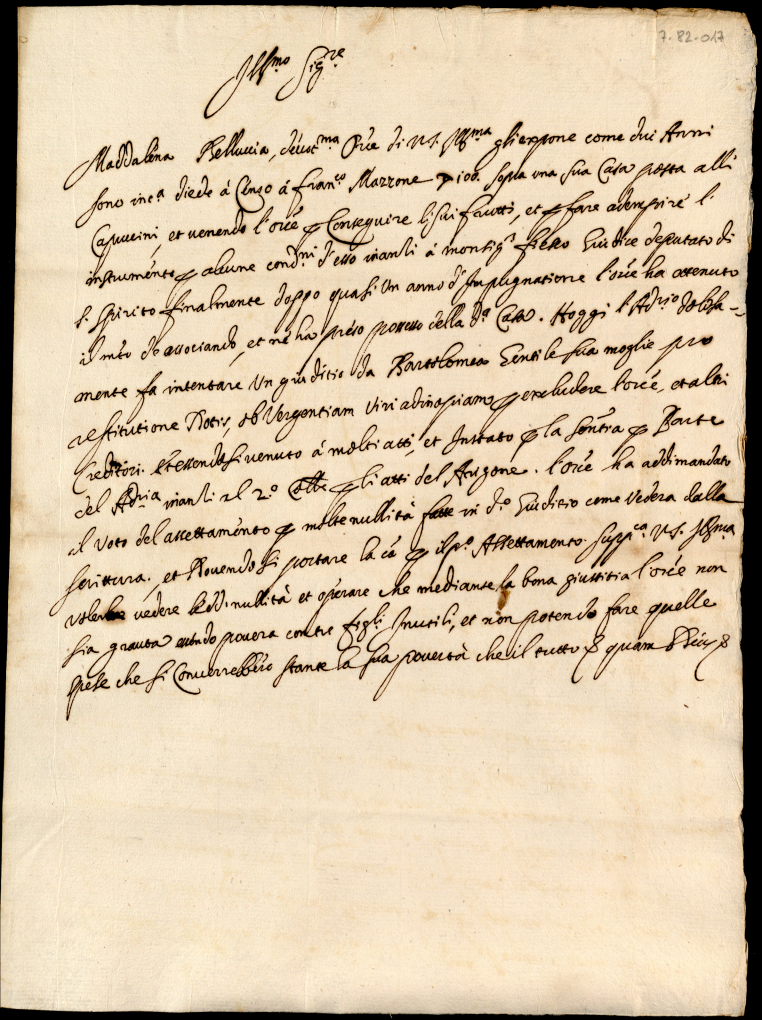 7-82-017
Ill.mo Sig.re
Maddalena Belluccia, devot.ma Or.ce di V.S. Ill.ma gli expone come dui Anni
sono in c.a diede à Censo à fran.co Mazzone 100. sopra una sua Casa posta alli
Capuccini, et venendo l'or.ce p conseguire li sui frutti, et p fare adempire l'
instrumento p alcune cond.ni d'esso inanti à monsig.r Giudice deputato di
S. Spirito finalmente doppo quasi un anno d'Impugnatione l'or.ce ha ottenuto
il m.to de associando, et ne ha preso possesso della d.a Casa. Hoggi l'Ad.rio dolosa-
mente fa intentare un giuditio da Bartolomea Gentile sua moglie pro
restitutione Dotis, ob Vergentiam Viri ad inopiam p excludere l'or.ce, et altri
Creditori. Et essendosi venuto à molti atti, et Instato p la sentia p Parte
del Ad.rio inanti al 2.o p gli atti del Arigone. l'or.ce ha addimandato
il Voto del assettamento p molte nullità fatte in d.o Giuditio come vederà dalla
scrittura. et Dovendosi portare la cã p il p.o Assettamento. Supp.ca V.S. Ill.ma
vedere nullità et operare che mediante la bona giustitia l'or.ce non
sia gravata povera con tre figli Inutili, et non potendo fare quelle
spese che si converrebbero stante la sua povertà che il tutto quam Deus